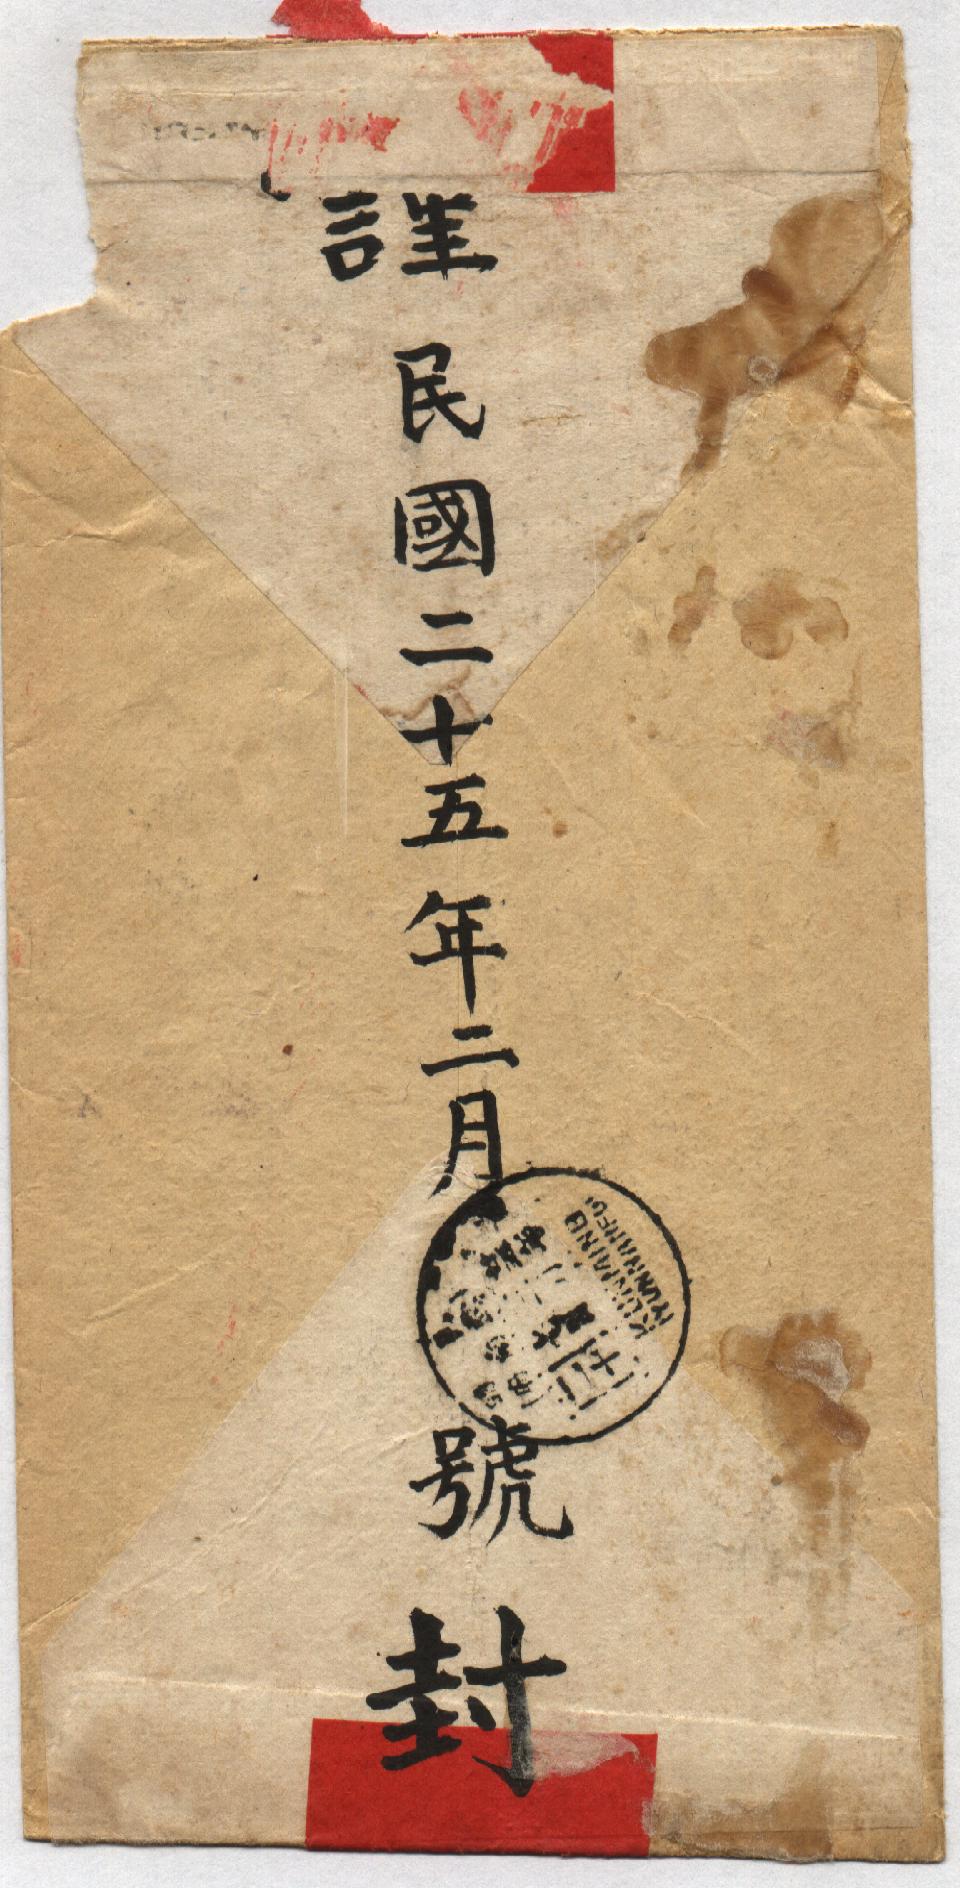 謹民國二十五年二月號封
KUNMING
YUNNANFU